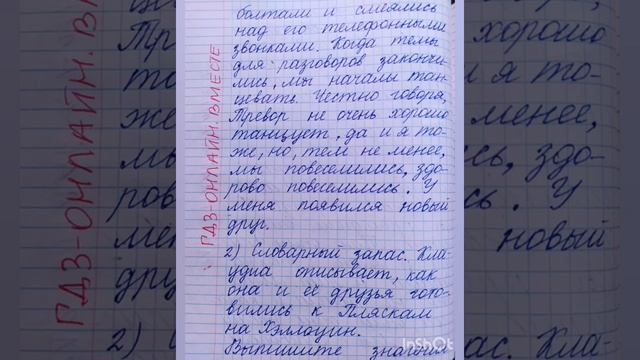 болтали и смеялись
над его телефонными
звонками. Когда темы
для разговоров закончи-
лись, мы начали тан-
цевать. Честно говоря,
Тревор не очень хорошо
танцует, да и я то-
же, но, тем не менее,
мы повеселились, здо-
рово повеселились. У
меня появился новый
друг.
2) Словарный запас. Кла-
удиа описывает, как
она и её друзья гото-
вились к Пляскам
на Хэллоуин.
Выпишите значения
ГДЗ-ОНЛАЙН. ВМЕСТЕ
InShOt